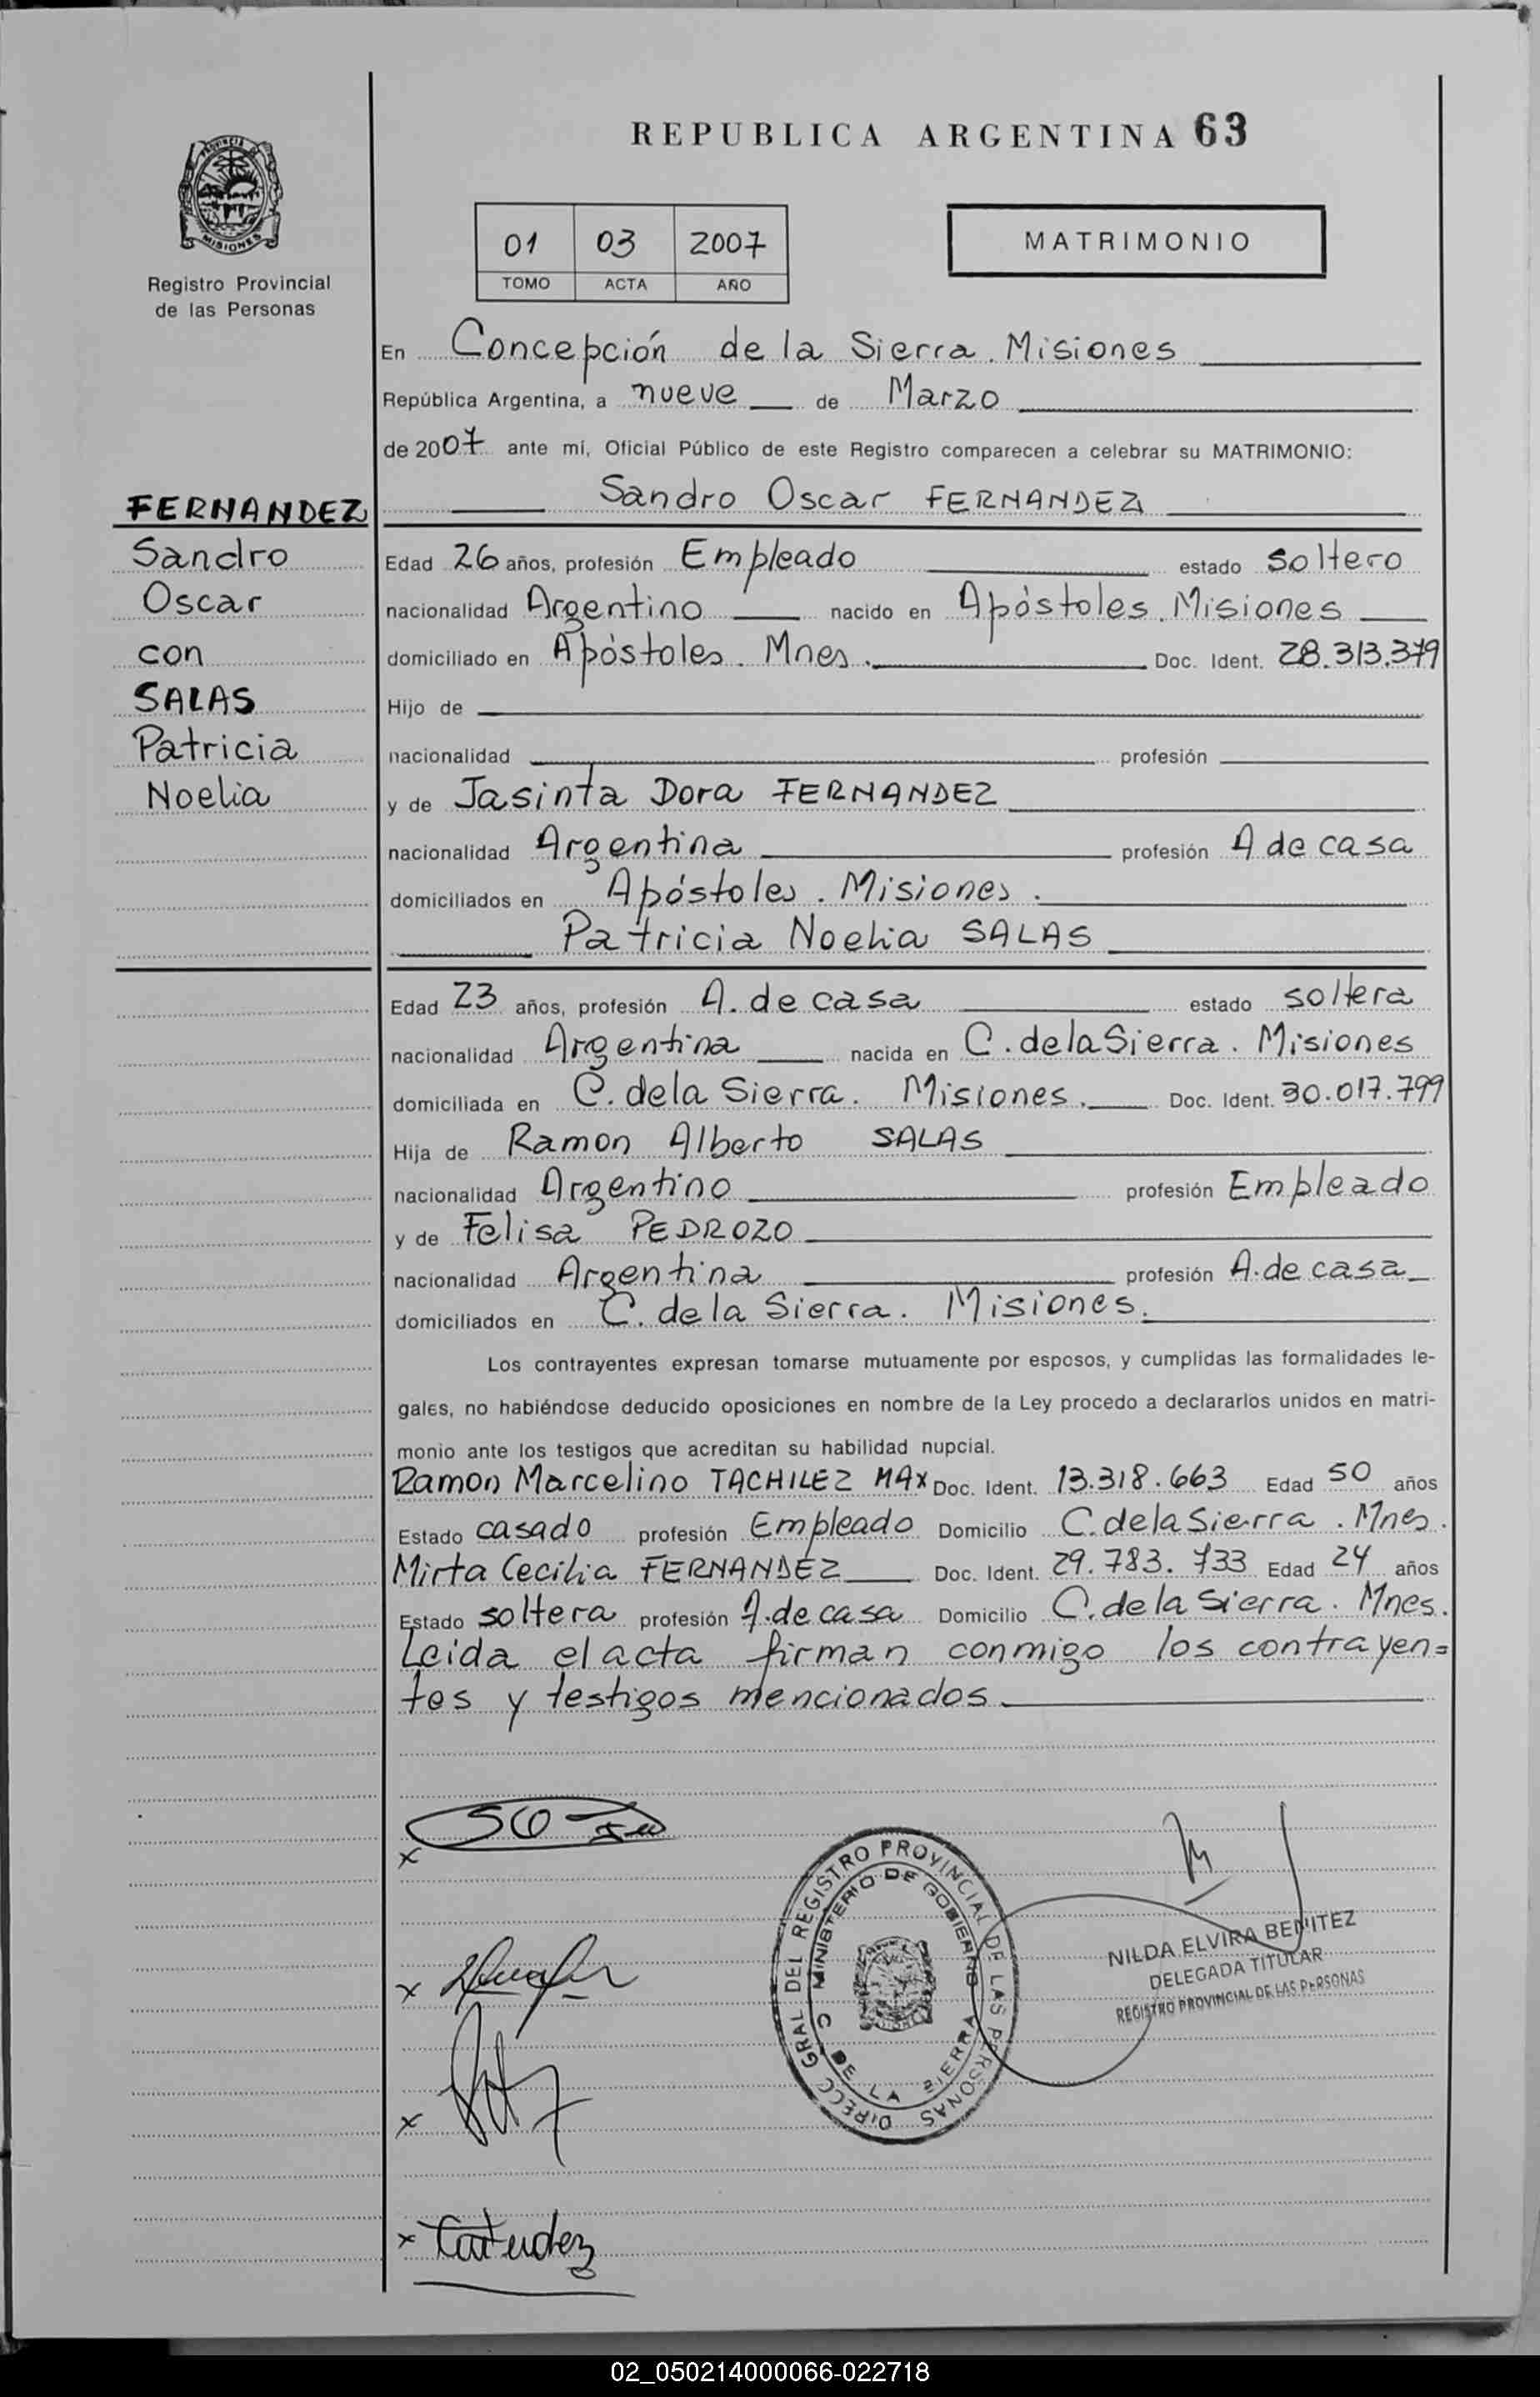 REPUBLICA ARGENTINA 63
PROVINCIA DE
MISIONES
Registro Provincial
de las Personas
01 03 2007
TOMO ACTA AÑO
MATRIMONIO
En Concepción de la Sierra. Misiones
República Argentina, a nueve de Marzo
de 2007 ante mí, Oficial Público de este Registro comparecen a celebrar su MATRIMONIO:
FERNANDEZ
Sandro
Oscar
con
SALAS
Patricia
Noelia
Sandro Oscar FERNANDEZ
Edad 26 años, profesión Empleado estado soltero
nacionalidad Argentino nacido en Apóstoles. Misiones
domiciliado en Apóstoles. Mnes. Doc. Ident. 28.313.379
Hijo de
nacionalidad profesión
y de Jasinta Dora FERNANDEZ
nacionalidad Argentina profesión A de casa
domiciliados en Apóstoles. Misiones.
Patricia Noelia SALAS
Edad 23 años, profesión A. de casa estado soltera
nacionalidad Argentina nacida en C. de la Sierra. Misiones
domiciliada en C. de la Sierra. Misiones. Doc. Ident. 30.017.799
Hija de Ramon Alberto SALAS
nacionalidad Argentino profesión Empleado
y de Felisa PEDROZO
nacionalidad Argentina profesión A. de casa
domiciliados en C. de la Sierra. Misiones.
Los contrayentes expresan tomarse mutuamente por esposos, y cumplidas las formalidades le-
gales, no habiéndose deducido oposiciones en nombre de la Ley procedo a declararlos unidos en matri-
monio ante los testigos que acreditan su habilidad nupcial.
Ramon Marcelino TACHILEZ MAX Doc. Ident. 13.318.663 Edad 50 años
Estado casado profesión Empleado Domicilio C. de la Sierra. Mnes.
Mirta Cecilia FERNANDEZ Doc. Ident. 29.783.733 Edad 24 años
Estado soltera profesión A. de casa Domicilio C. de la Sierra. Mnes.
Leida el acta firman conmigo los contrayen=
tes y testigos mencionados
DIRECC GRAL DEL REGISTRO PROVINCIAL DE LAS PERSONAS
MINISTERIO DE GOBIERNO
C DE LA SIERRA
NILDA ELVIRA BENITEZ
DELEGADA TITULAR
REGISTRO PROVINCIAL DE LAS PERSONAS
02_050214000066-022718